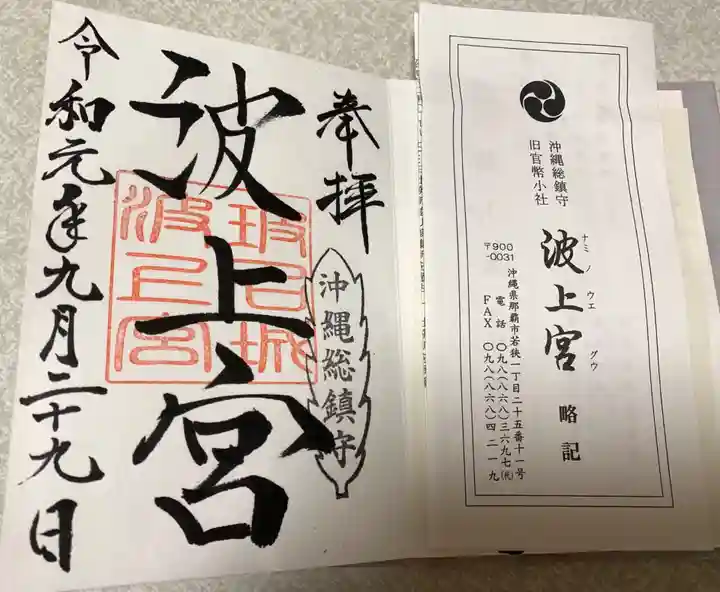 奉拝
沖縄総鎮守
波上宮
令和元年九月二十九日
沖縄総鎮守
旧官幣小社
波上宮 略記
ナミノウエグウ
〒900
-0031
沖縄県那覇市若狭一丁目二十五番十一号
電話 〇九八(八六八)三六九七㈹
FAX 〇九八(八六八)四二一九